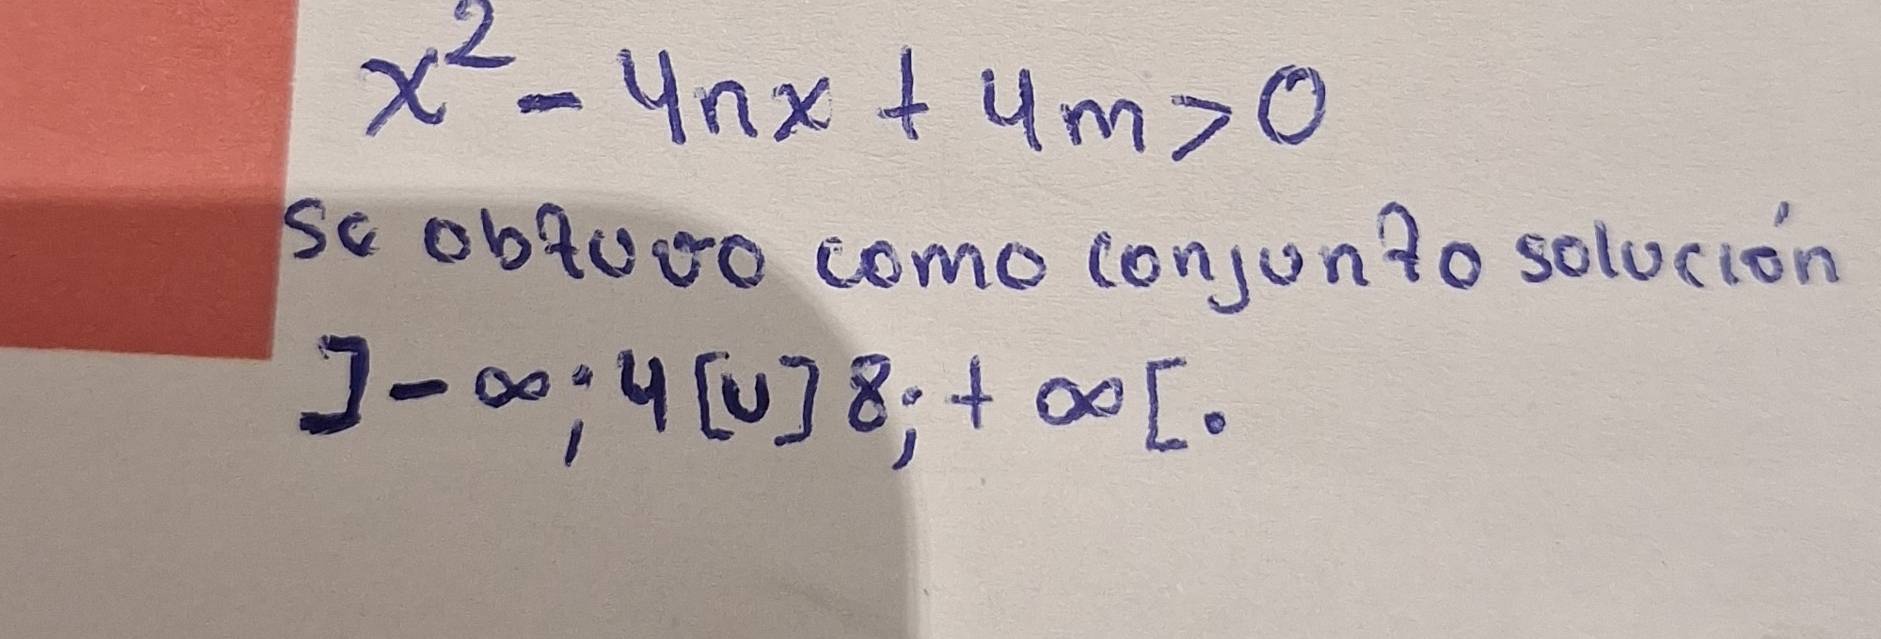 x² - 4nx + 4m > 0
se obtuvo como conjunto solución
]-∞; 4[U]8; +∞[.